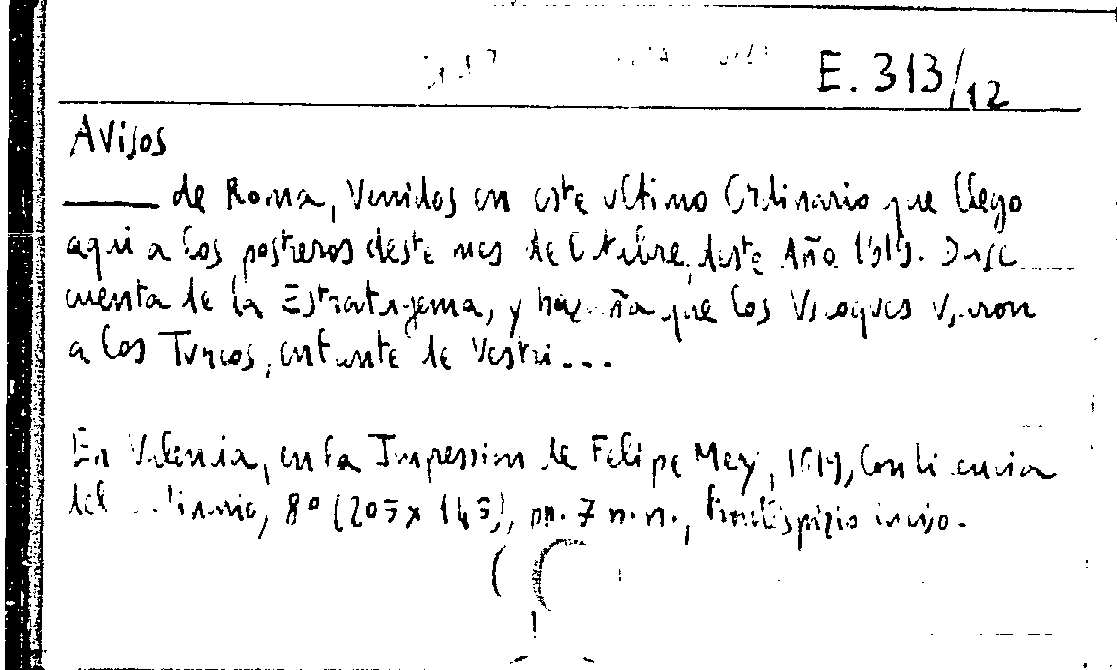 E. 313/12
Avisos
de Roma, Venidos en este ultimo Ordinario que llego
aqui a los postreros deste mes de Octubre, deste Año 1619. Dase
cuenta de la Estratagema, y hazaña que los Vscoques
a los Turcos,
En Valencia, en la Impression de Felipe Mey, 1619, Con licencia
del 8° (205 x 145), pp. 7 n.n., frontespizio inciso.